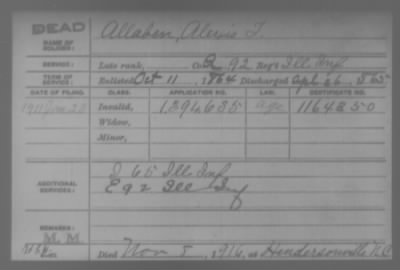 DEAD
NAME OF SOLDIER: Allaben, Alexis T.
SERVICE: Late rank, Co. B, 92 Reg't Ill Inf
TERM OF SERVICE: Enlisted Oct 11, 1864 Discharged , 1865
DATE OF FILING. CLASS. APPLICATION NO. LAW. CERTIFICATE NO.
1911 Jan 23 Invalid, 1394635 age 1164350
Widow,
Minor,
ADDITIONAL SERVICES: I 65 Ill Inf
E 92 Ill Inf
REMARKS:
M. M.
Died Nov 5, 1916, at Hendersonville N.C.